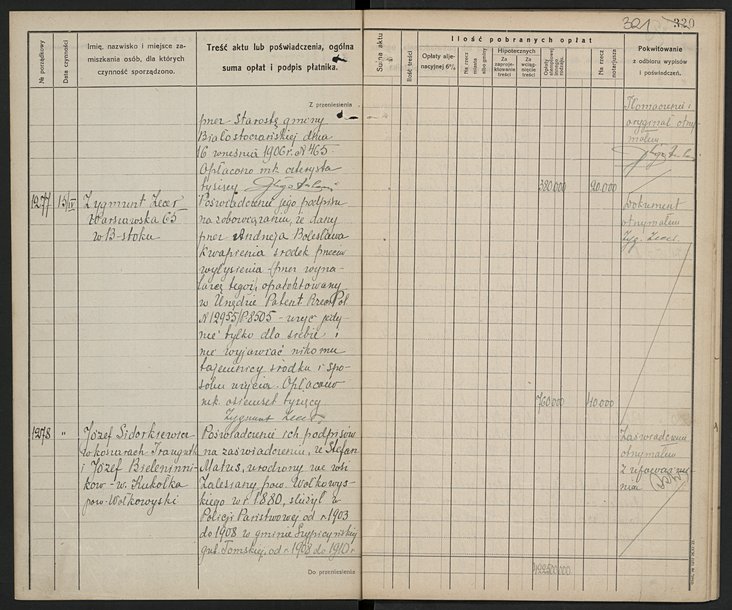 321 320
№ porządkowy
Data czynności
Imię, nazwisko i miejsce za-
mieszkania osób, dla których
czynność sporządzono.
Treść aktu lub poświadczenia, ogólna
suma opłat i podpis płatnika.
Suma aktu
Ilość treści
Ilość pobranych opłat
Opłaty alje-
nacyjnej 6%
Na rzecz
miasta
albo gminy
Hipotecznych
Za
zaproje-
ktowanie
treści
Za
wciąg-
nięcie
treści
Opłaty
stemplowej
innego
rodzaju
Na rzecz
notarjusza
Pokwitowanie
z odbioru wypisów
i poświadczeń.
Z przeniesienia
przez Starostę gminy
Białostoczańskiej dnia
16 września 1906 r. № 465 -
Opłacono mk. czterysta
tysięcy
380.000 20.000
Tłomaczenie i
oryginał otrzy-
małem
1277 15/IV Zygmunt Zecer
Warszawska 65
w B-stoku
Poświadczenie jego podpisu
na zobowiązaniu, że dany
przez Andrzeja Bolesława
Kwapienia środek przeciw
wyłysienia (przez wyna-
lazcę tegoż, opatentowany
w Urzędzie Patent. Rzec. Pol.
№ 12955/P.8505 - użyć jedy-
nie tylko dla siebie i
nie wyjawiać nikomu
tajemnicy środka i spo-
sobu użycia. Opłacono
mk. osiemset tysięcy
Zygmunt Zecer
760.000 40.000
Dokument
otrzymałem
Zyg. Zecer.
1278 " Józef Sidorkiewicz
w koszarach Traugutta
i Józef Bieleninni-
ków - w. Kukołka
pow. Wołkowyski
Poświadczenie ich podpisów
na zaświadczeniu, że Stefan
Matus, urodzony we wsi
Zalesiany pow. Wołkowys-
kiego w r. 1880, służył w
Policji Państwowej od r. 1903
do 1908 w gminie
gub. Tomskiej, od r. 1908 do 1910 r.
Zaświadczenie
otrzymałem
Do przeniesienia